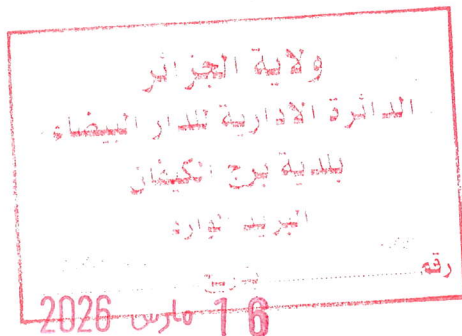 ولاية الجزائر
الدائرة الادارية للدار البيضاء
بلدية برج الكيفان
البريد الوارد
رقم
بتاريخ
16 مارس 2026